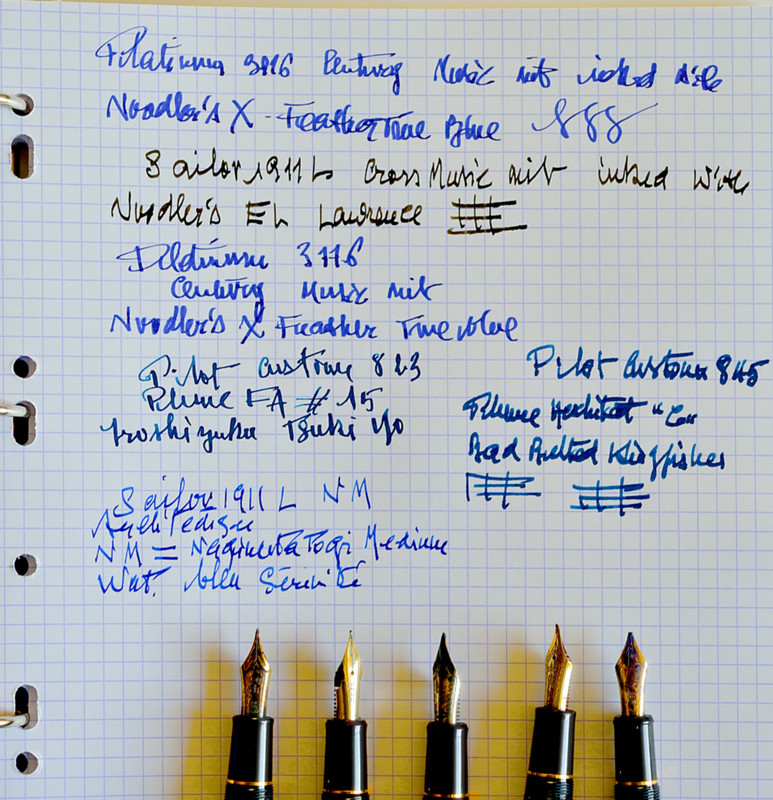 Platinum 3776 Century Music nib inked with
Noodler's X-Feather True Blue
Sailor 1911 L Cross Music nib inked with
Noodler's EL Lawrence
Platinum 3776
Century Music nib
Noodler's X Feather True blue
Pilot Custom 823
Plume FA # 15
Iroshizuku Tsuki Yo
Pilot Custom 845
Plume Architect "C"
Bad Belted Kingfisher
Sailor 1911 L NM
NM = Naginata Togi Medium
Wat. bleu Sérénité